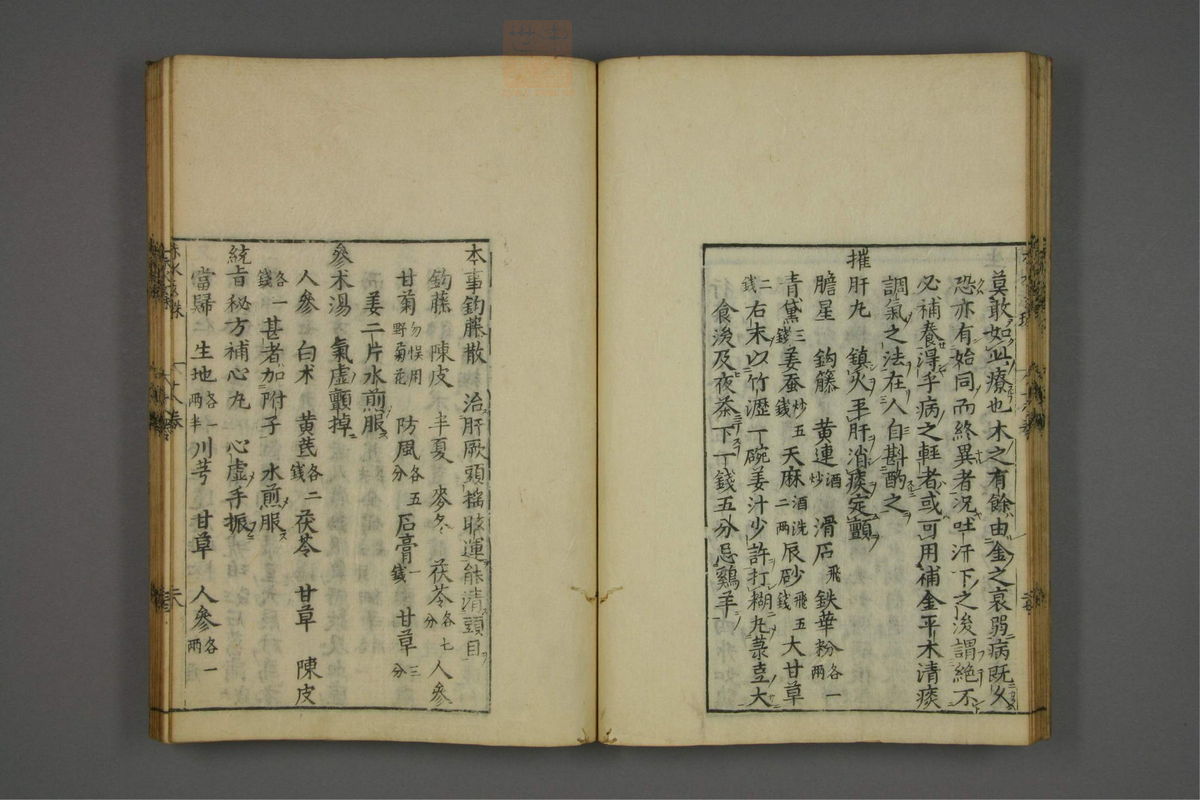 莫敢如此療也木之有餘由金之衰弱病既久
恐亦有始同而終異者況吐汗下之後謂絕不
必補養得乎病之輕者或可用補金平木清痰
調氣之法在人自斟酌之
摧肝丸　鎮火平肝消痰定顫
膽星　鈎籐　黃連酒炒　滑石飛　鉄華粉各一兩
青黛三錢　姜蚕炒五錢　天麻酒洗二兩　辰砂飛五錢　大甘草
二錢　右末以竹瀝一碗姜汁少許打糊丸菉豆大
食後及夜茶下一錢五分忌鷄羊
本事鈎藤散　治肝厥頭搖眩運能清頭目
鈎藤　陳皮　半夏　麥冬　茯苓各七分　人參
甘菊勿悮用野菊花　防風各五分　石膏一錢　甘草三分
姜二片水煎服
參朮湯　氣虛顫掉
人參　白朮　黃芪各二錢　茯苓　甘草　陳皮
各一錢　甚者加附子　水煎服
統旨秘方補心丸　心虛手振
當歸　生地各一兩半　川芎　甘草　人參各一兩